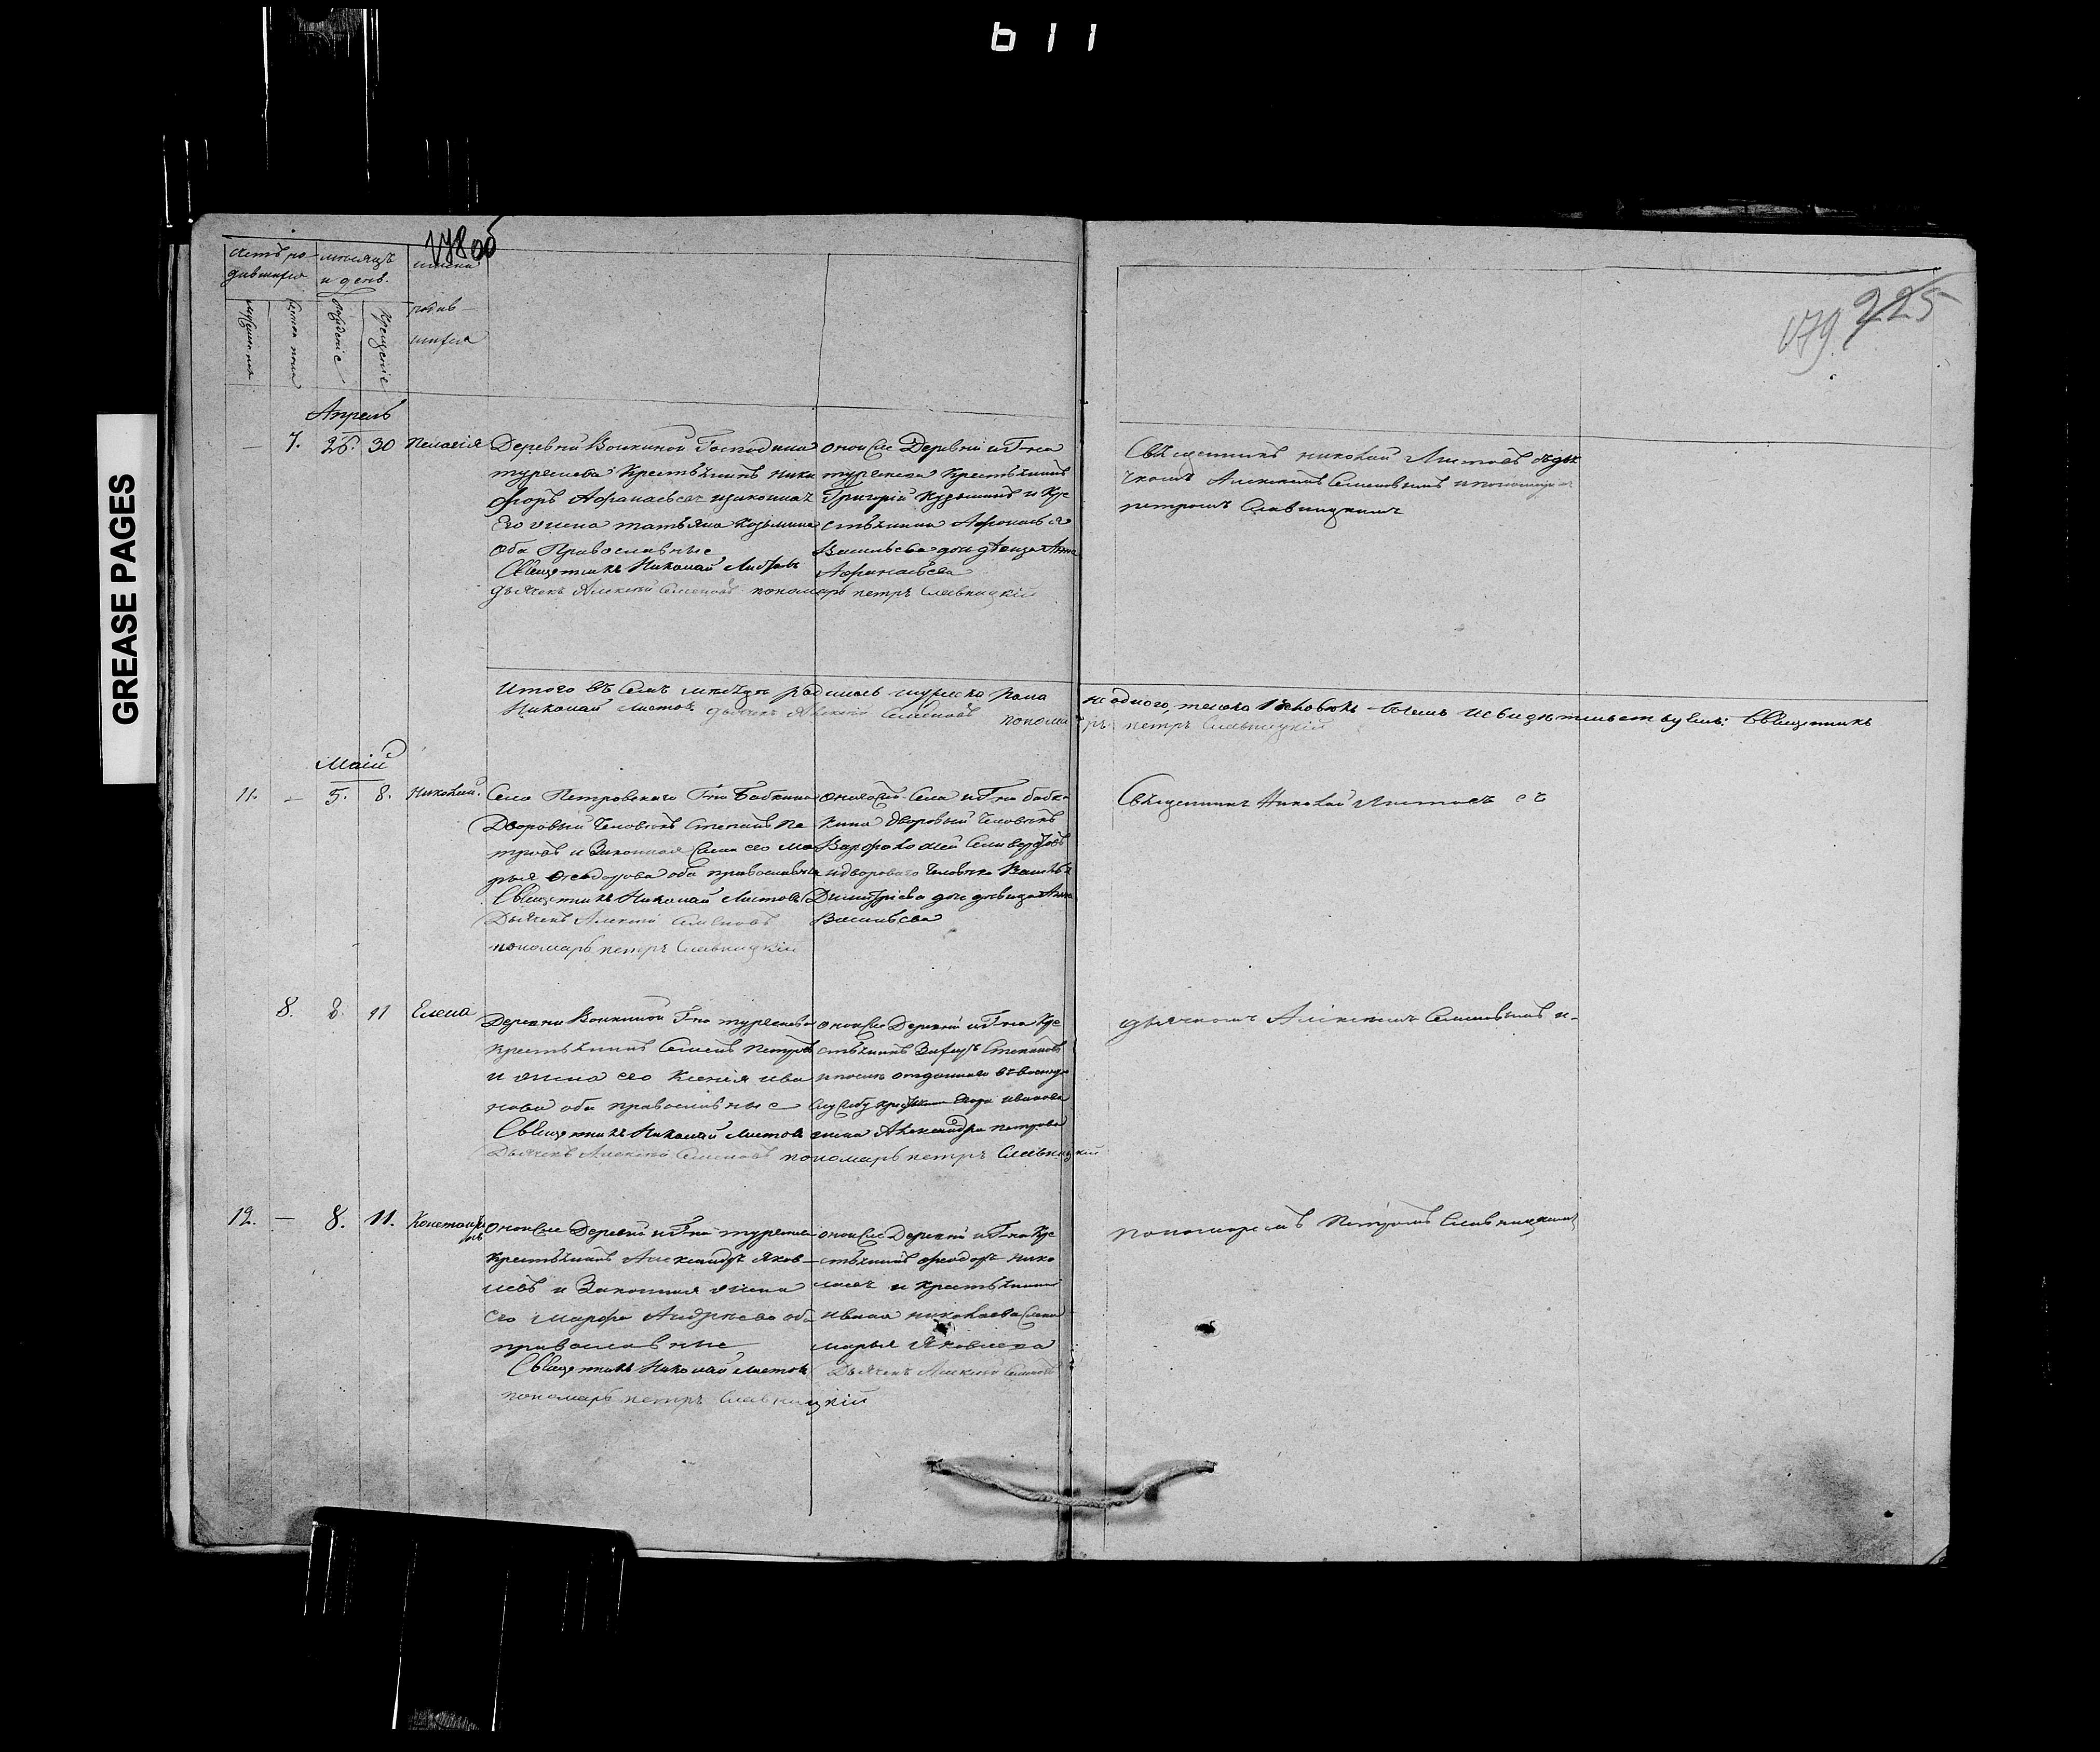 611
GREASE PAGES
178 об
179 225
мѣсяцъ
и день.
имена
родив-
шихся
рожденіе
крещеніе
Апрель
— 7. 26. 30 Пелагія
Деревни Волкиной Господина
крестьянинъ Ники
форъ Афанасьевъ и законная
Его жена татьяна Козьмина
Оба Православные
Священникъ Николай Листовъ
дьячекъ Алексей Семеновъ пономарь петръ Славницкій
оной же Деревни и Г-на
крестьянинъ
Григорій и Кре
стьянина Афонасья
Васильева дочь девица Анна
Афанасьева
Священникъ николай Листовъ съ дья
чкомъ Алексеемъ Семеновымъ и пономаремъ
петромъ Славницкимъ
Итого въ Семъ месяце родилось мужеска пола
ни одного, женска 1 человекъ въ чемъ и свидетельствуемъ: Священникъ
Николай Листовъ дьячекъ Алексей Семеновъ пономарь петръ Славницкій
Маій
11. — 5. 8. Николай.
Села Петровскаго Г-на Бабкина
Дворовый Человекъ Степанъ Пе
тровъ и Законная Жена его Ма
рья Феодорова оба православные
Священникъ Николай Листовъ
Дьячекъ Алексей Семеновъ
пономарь петръ Славницкій
Села и Г-на Баб-
кина дворовый Человекъ
и двороваго Человека Василья
Димитріева дочь девица Анна
Васильева
Священникъ Николай Листовъ съ
8. 8. 11 Елена
Деревни Волкиной Г-на
Крестьянинъ Семенъ Петровъ
и жена его Ксенія Ива
нова оба православные
Священникъ Николай Листовъ
Дьячекъ Алексей Семеновъ пономарь петръ Славницкій
оной же Деревни и Г-на Кре
стьянинъ Степановъ
отданнаго въ военную
службу Иванова
жена Александра петрова
дьячкомъ Алексеемъ Семеновымъ и-
12. — 8. 11. Константинъ
оной же Деревни и Г-на
Крестьянинъ Александръ Яков-
левъ и Законная жена
его Марфа Андреева оба
православные
Священникъ Николай Листовъ
пономарь петръ Славницкій
оной же Деревни и Г-на Кре
стьянинъ феодоръ Нико
лаевъ и крестьянина
ивана николаева жена
марья Яковлева
Дьячекъ Алексей Семеновъ
пономаремъ Петромъ Славницкимъ